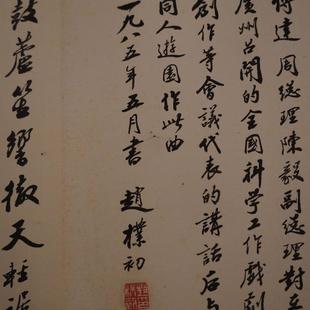 傳達周总理陳毅副总理對在
廣州召開的全國科学工作戲劇
創作等會議代表的講話后与
同人遊園作此曲
一九八五年五月書 趙樸初
鼓蘆笙響徹天輕